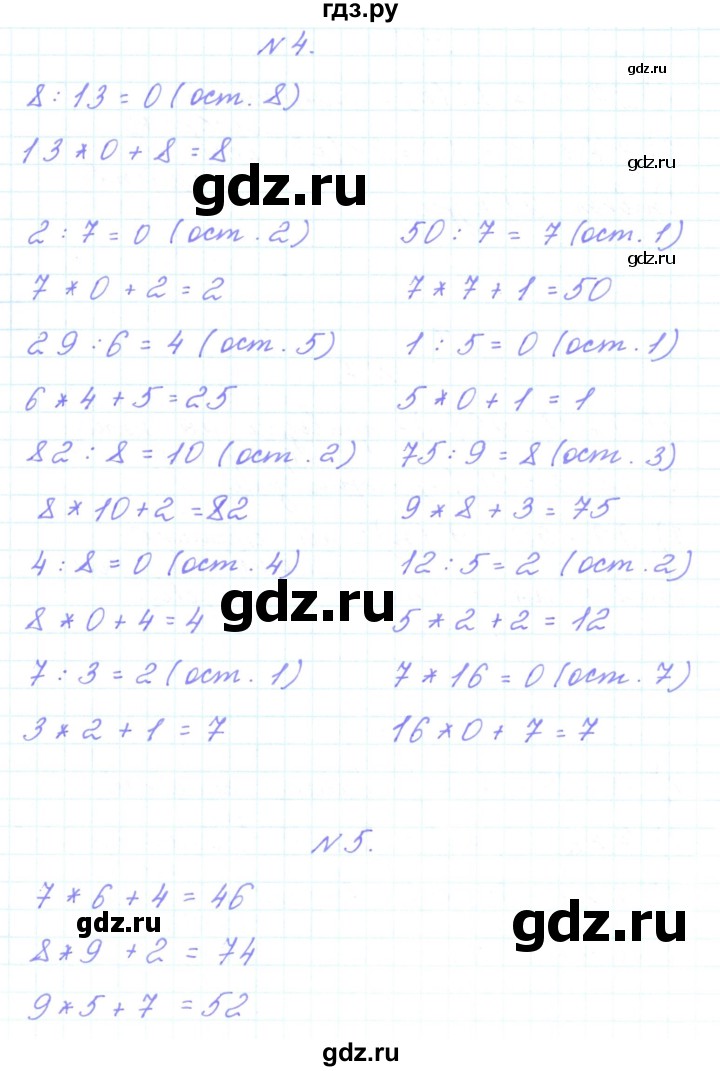 гдз.ру
N 4.
gdz.ru
8 : 13 = 0 (ост. 8)
13 * 0 + 8 = 8
gdz.ru
gdz.ru
2 : 7 = 0 (ост. 2)
50 : 7 = 7 (ост. 1)
gdz.ru
7 * 0 + 2 = 2
7 * 7 + 1 = 50
29 : 6 = 4 (ост. 5)
1 : 5 = 0 (ост. 1)
6 * 4 + 5 = 25
5 * 0 + 1 = 1
82 : 8 = 10 (ост. 2)
75 : 9 = 8 (ост. 3)
8 * 10 + 2 = 82
9 * 8 + 3 = 75
4 : 8 = 0 (ост. 4)
12 : 5 = 2 (ост. 2)
gdz.ru
8 * 0 + 4 = 4
5 * 2 + 2 = 12
7 : 3 = 2 (ост. 1)
7 * 16 = 0 (ост. 7)
3 * 2 + 1 = 7
16 * 0 + 7 = 7
N 5.
7 * 6 + 4 = 46
gdz.ru
gdz.ru
8 * 9 + 2 = 74
9 * 5 + 7 = 52
gdz.ru